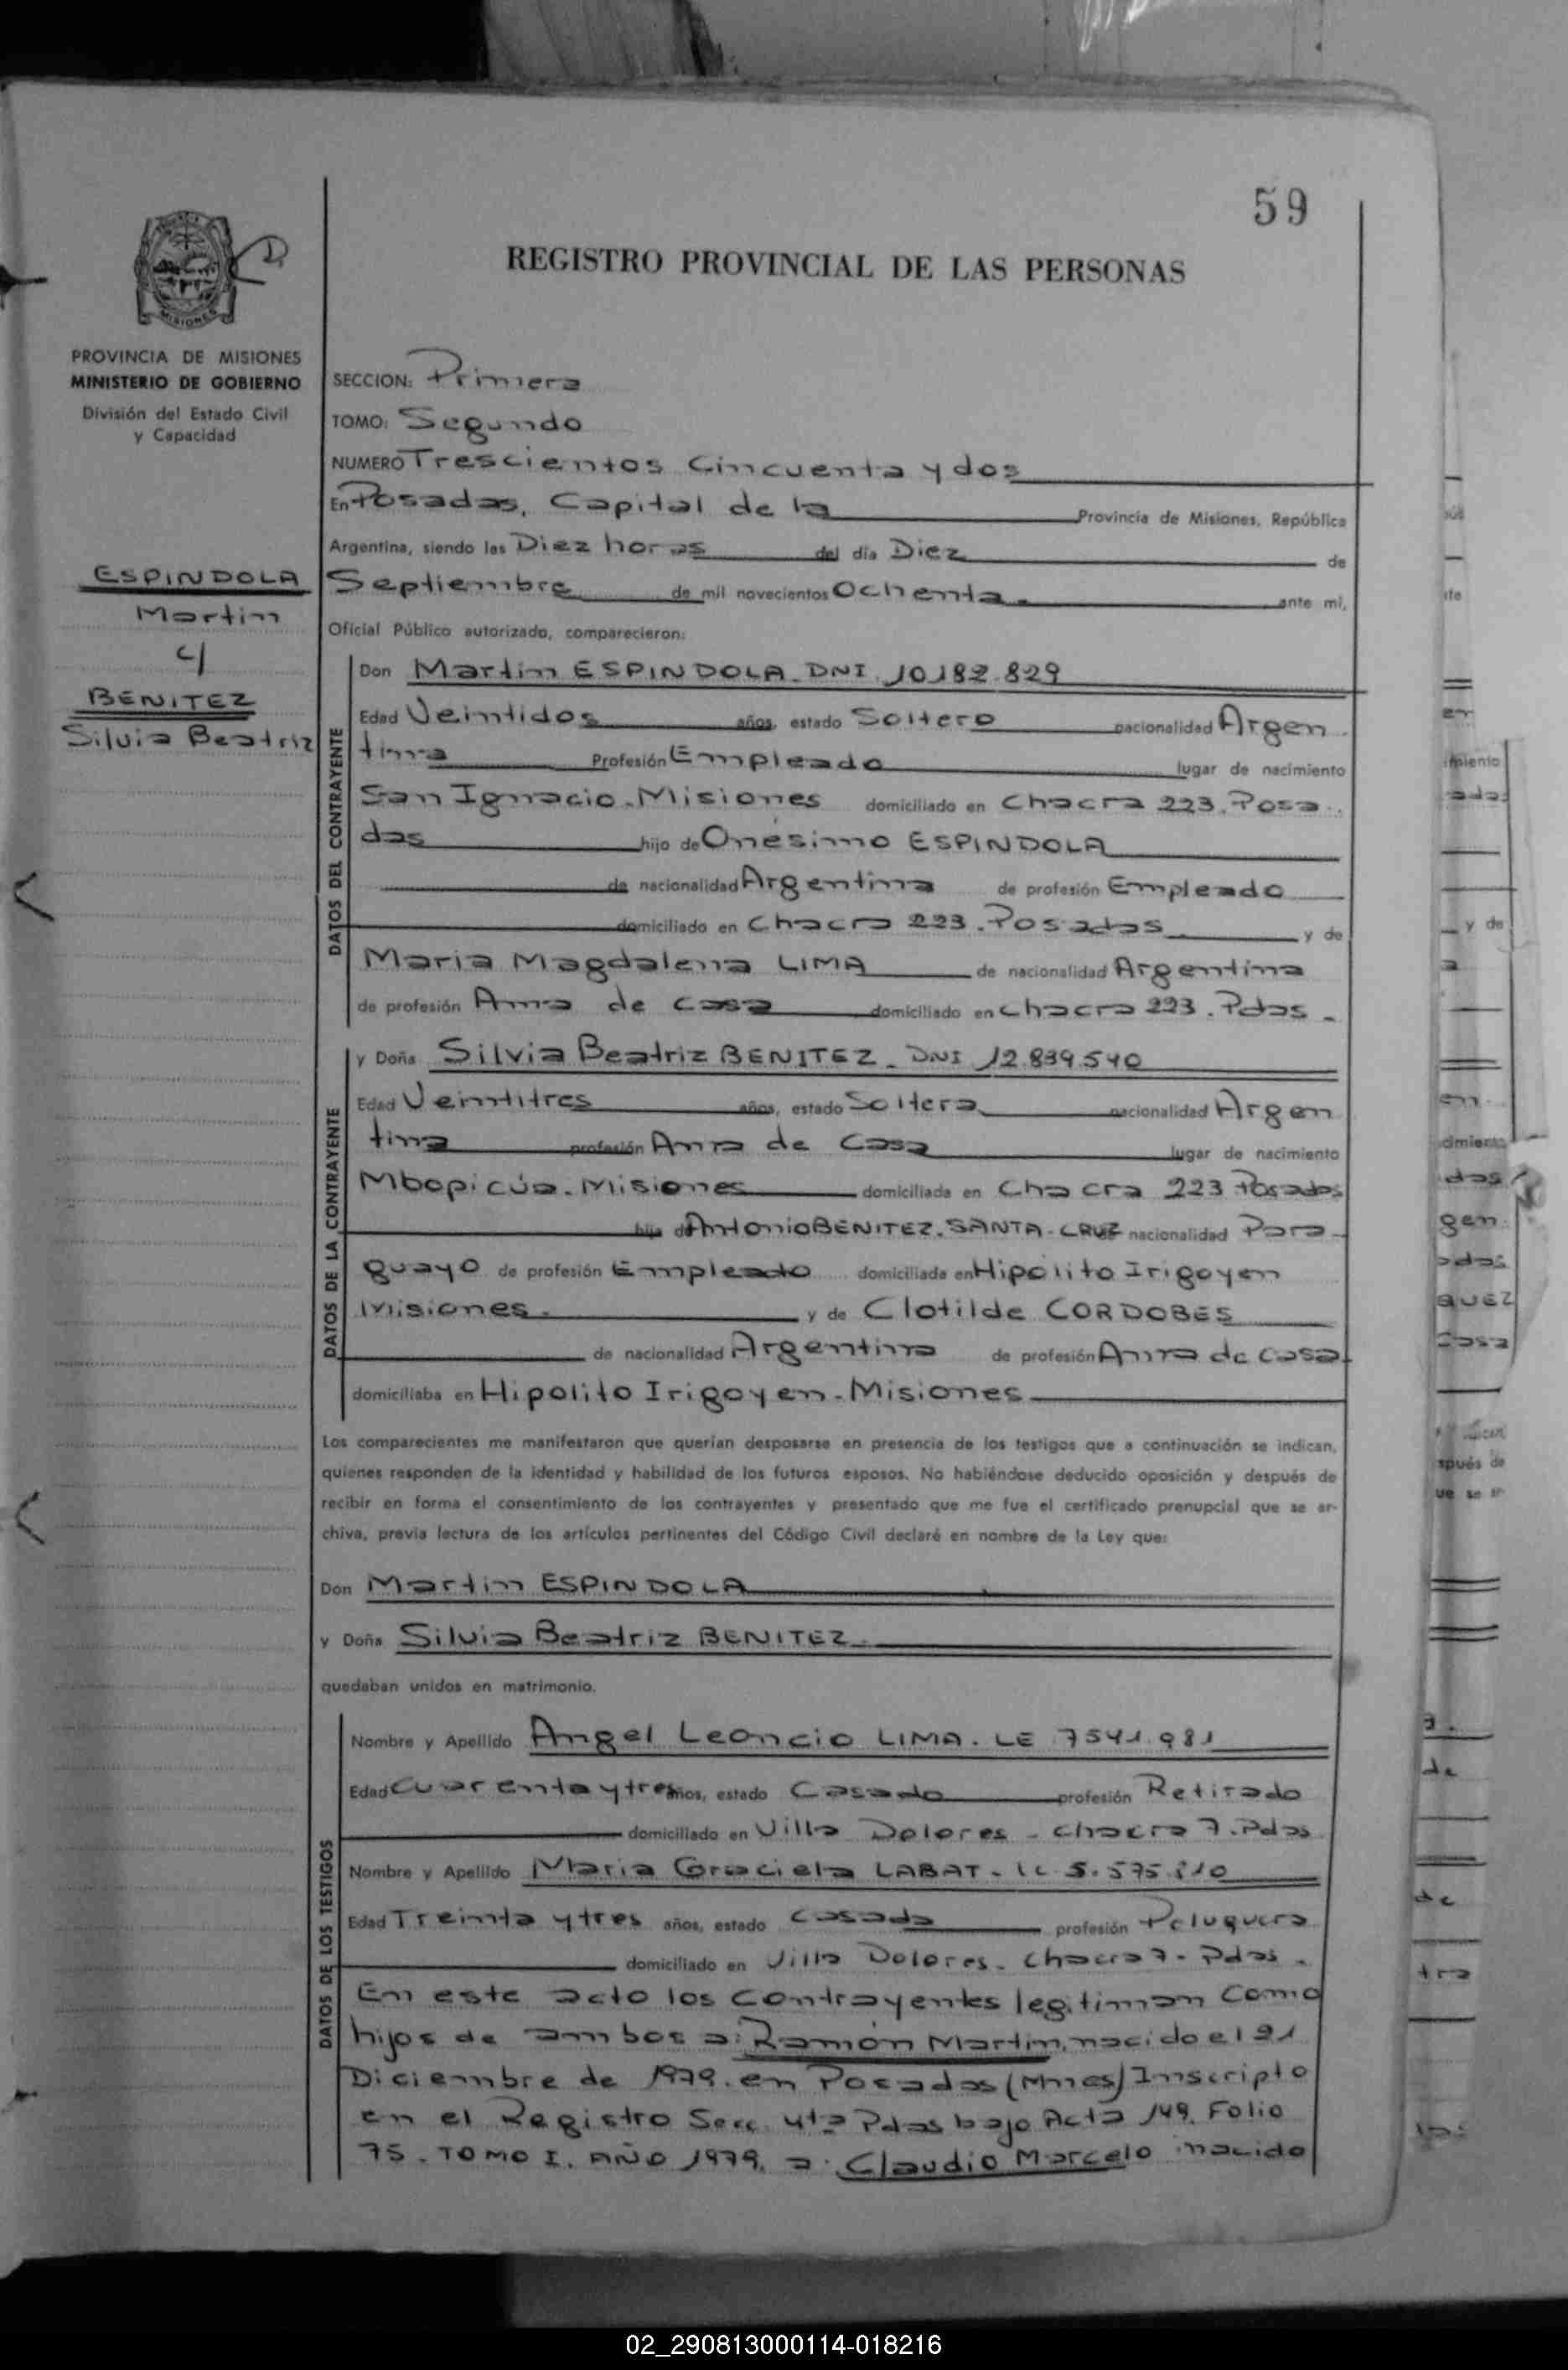 59
REGISTRO PROVINCIAL DE LAS PERSONAS
MISIONES
PROVINCIA DE MISIONES
MINISTERIO DE GOBIERNO
División del Estado Civil
y Capacidad
ESPINDOLA
Martin
c/
BENITEZ
Silvia Beatriz
SECCION: Primera
TOMO: Segundo
NUMERO Trescientos Cincuenta y dos
En Posadas, Capital de la Provincia de Misiones, República
Argentina, siendo las Diez horas del día Diez de
Septiembre de mil novecientos Ochenta. ante mi,
Oficial Público autorizado, comparecieron:
DATOS DEL CONTRAYENTE
Don Martin ESPINDOLA. DNI 10.182.829
Edad Veintidos años, estado Soltero nacionalidad Argen
tina Profesión Empleado lugar de nacimiento
San Ignacio. Misiones domiciliado en Chacra 223. Posa
das hijo de Onésimo ESPINDOLA
de nacionalidad Argentina de profesión Empleado
domiciliado en Chacra 223. Posadas y de
Maria Magdalena LIMA de nacionalidad Argentina
de profesión Ama de casa domiciliado en Chacra 223. Pdas.
DATOS DE LA CONTRAYENTE
y Doña Silvia Beatriz BENITEZ. DNI 12.839.540
Edad Veintitres años, estado Soltera nacionalidad Argen
tina profesión Ama de Casa lugar de nacimiento
Mbopicúa. Misiones domiciliada en Chacra 223 Posadas
hija de Antonio BENITEZ. SANTA. CRUZ nacionalidad Para-
guayo de profesión Empleado domiciliada en Hipólito Irigoyen
Misiones. y de Clotilde CORDOBES
de nacionalidad Argentina de profesión Ama de casa
domiciliaba en Hipolito Irigoyen. Misiones
Los comparecientes me manifestaron que querían desposarse en presencia de los testigos que a continuación se indican,
quienes responden de la identidad y habilidad de los futuros esposos. No habiéndose deducido oposición y después de
recibir en forma el consentimiento de los contrayentes y presentado que me fue el certificado prenupcial que se ar-
chiva, previa lectura de los artículos pertinentes del Código Civil declaré en nombre de la Ley que:
Don Martin ESPINDOLA
y Doña Silvia Beatriz BENITEZ.
quedaban unidos en matrimonio.
DATOS DE LOS TESTIGOS
Nombre y Apellido Angel Leoncio LIMA. LE 7541.981
Edad Cuarenta y tres años, estado Casado profesión Retirado
domiciliado en Villa Dolores - chacra 7. Pdas
Nombre y Apellido Maria Graciela LABAT. LC 5.575.810
Edad Treinta y tres años, estado casada profesión Peluquera
domiciliado en Villa Dolores. Chacra 7 - Pdas.
En este acto los contrayentes legitiman como
hijos de ambos a: Ramón Martin, nacido el 21
Diciembre de 1979. en Posadas (Mnes) Inscripto
en el Registro Secc. 4ta Pdas bajo Acta 149. Folio
75. TOMO I. AÑO 1979. a: Claudio Marcelo nacido
02_290813000114-018216